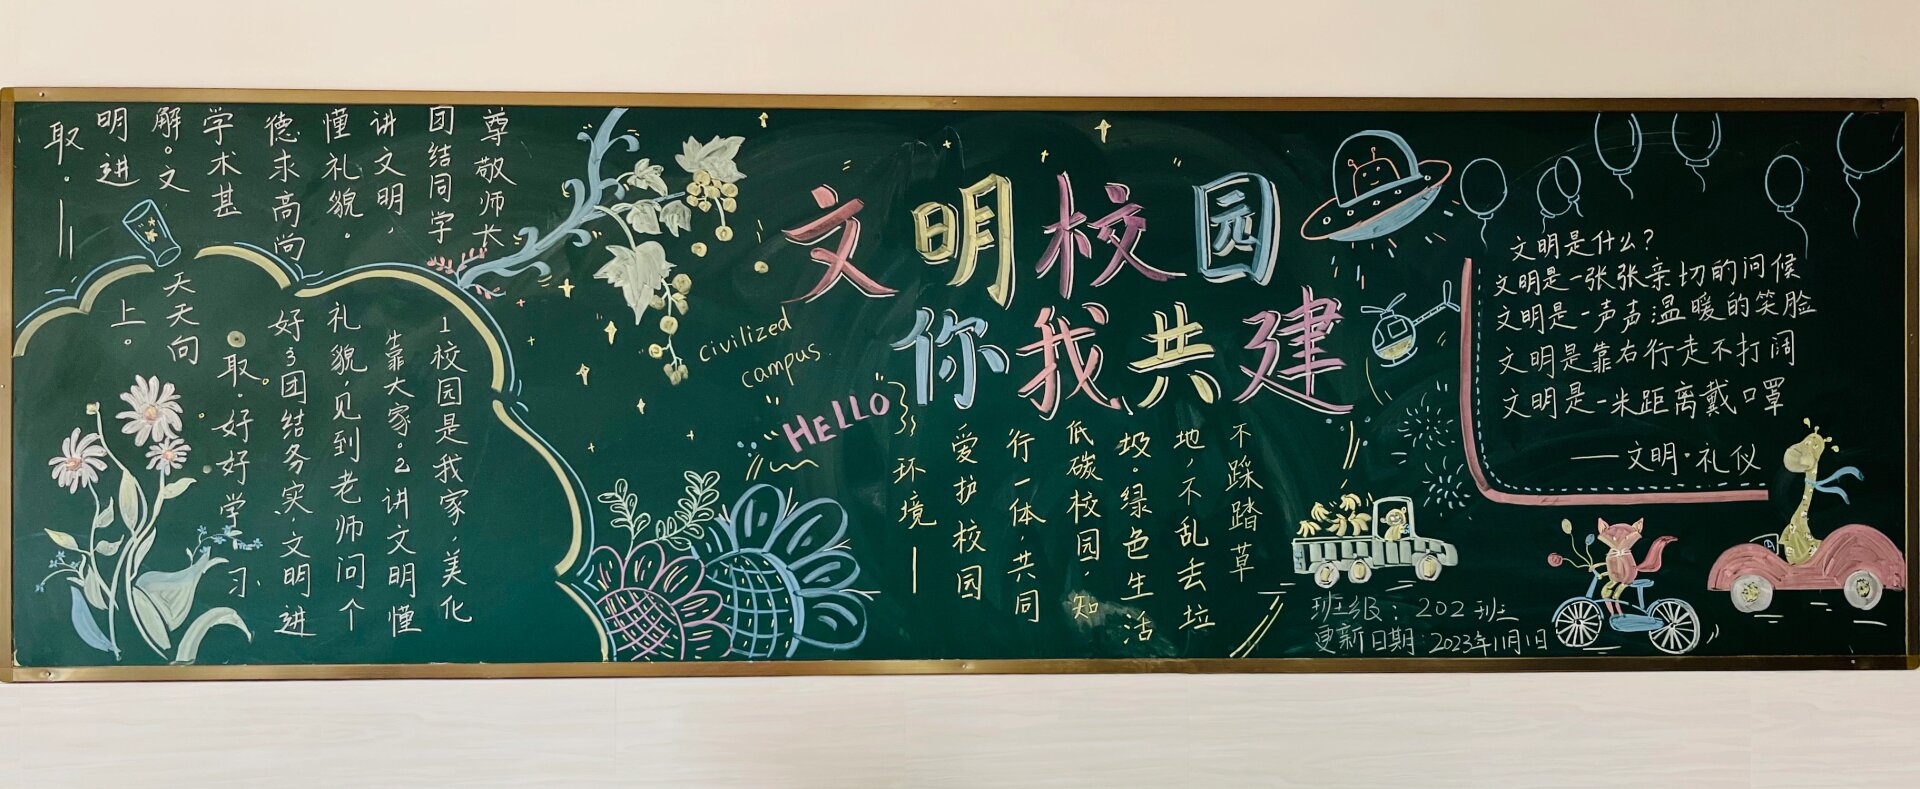 文明校园
你我共建
civilized
campus.
HELLO
尊敬师长
团结同学
讲文明,
懂礼貌.
德求高尚
学术甚
解。文
明进
取.——
1校园是我家,美化
靠大家。2讲文明懂
礼貌,见到老师问个
好3团结务实,文明进
取.好好学习.
天天向
上。
不踩踏草
地,不乱去垃
圾.绿色生活
低碳校园,知
行一体,共同
爱护校园
环境——
文明是什么?
文明是一张张亲切的问候
文明是一声声温暖的笑脸
文明是靠右行走不打闹
文明是一米距离戴口罩
——文明·礼仪
班级:202班
更新日期:2023年11月1日